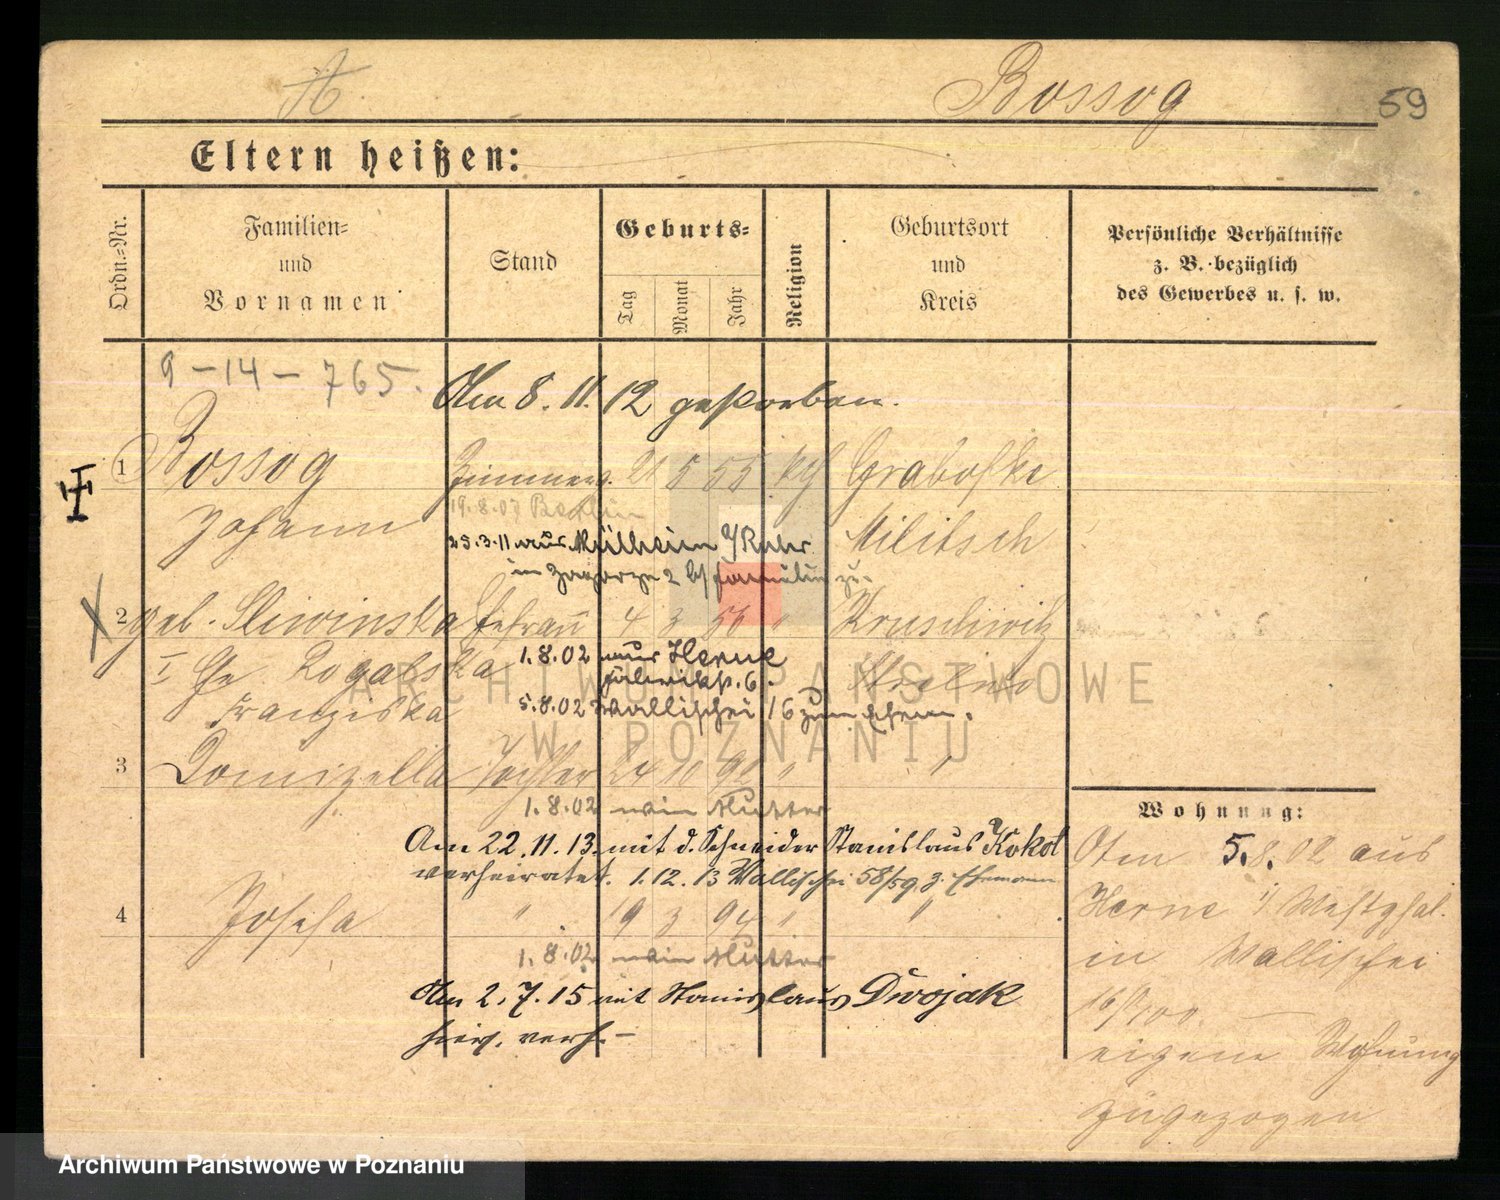 A
Bossog
59
Eltern heißen:
Ordn.=Nr.
Familien= und Vornamen
Stand
Geburts=
Tag
Monat
Jahr
Religion
Geburtsort und Kreis
Persönliche Verhältnisse z. B. bezüglich des Gewerbes u. s. w.
9 – 14 – 765.
Am 8. 11. 12 gestorben.
1 Bossog 21 5 55 kth
Johann Militsch
19.8.07 Berlin
23.3.11 aus Mülheim a/Ruhr
in 2 b/ Familie zu.
2 geb. Sliwinska Ehefrau 4 3 56 " Kruschwitz
I Ge. Rogalska 1.8.02 aus Herne
Franziska
5.8.02 Wallischei 16 zum Ehem.
3 Domizella Tochter 24 10 92 " "
1.8.02 wie Mutter
Am 22.11.13. mit d. Schneider Stanislaus Kokot
verheiratet. 1.12.13 Wallischei 58/59 z. Ehemann
4 Josefa " 19 3 94 " "
1.8.02 wie Mutter
Am 2.7.15 mit Stanislaus Dwojak
hier. verh. –
Wohnung:
Am 5.8.02 aus
Herne i/ Westphal.
in Wallischei
eigene Wohnung
zugezogen
ARCHIWUM PAŃSTWOWE
W POZNANIU
Archiwum Państwowe w Poznaniu